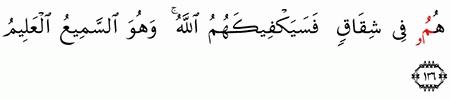 هُمُۥ فِى شِقَاقٖ فَسَيَكْفِيكَهُمُ اُ۬للَّهُۖ وَهُوَ اَ۬لسَّمِيعُ اُ۬لْعَلِيمُ
١٣٦